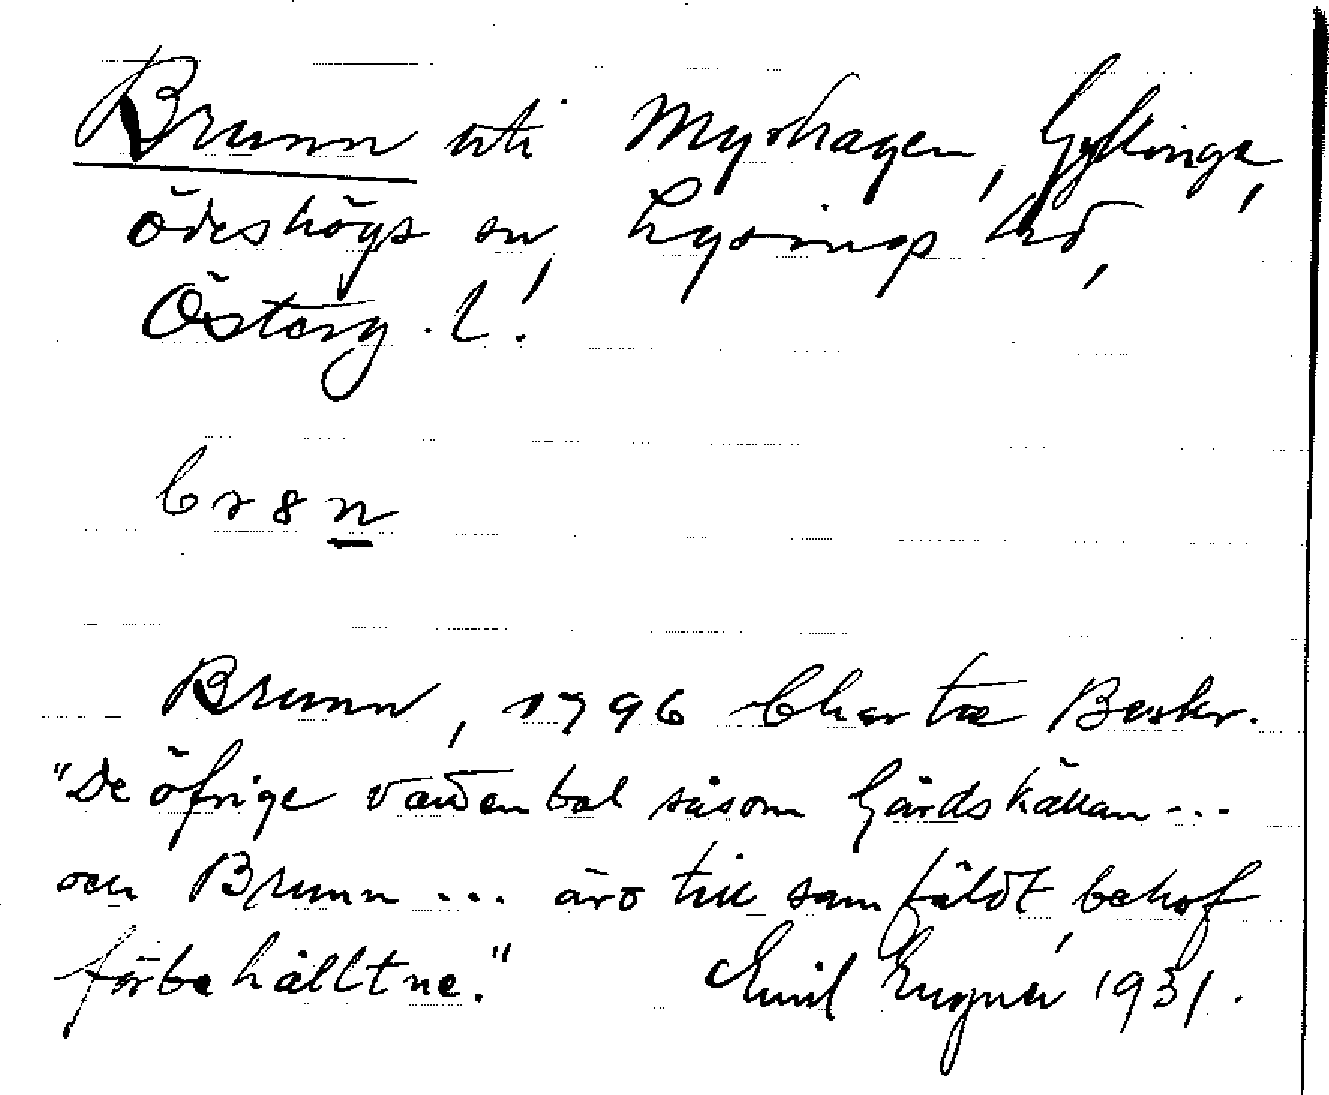 Brunn uti Myrhagen, Gyllinge,
Ödeshögs sn, Lysings hd,
Österg. l.
br8n
Brunn, 1796 Charta Beskr.
"De öfrige vattental såsom Gärdskällan ...
och Brunn ... äro till samfäldt behof
förbehålltne." Emil Eugner 1931.